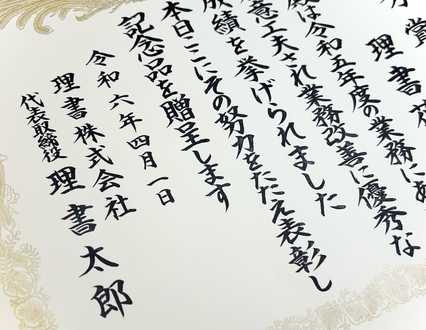 賞
理書
は令和五年度の業務にあ
意工夫され業務改善に優秀な
成績を挙げられました
本日ここにその努力をたたえ表彰し
記念品を贈呈します
令和六年四月一日
理書株式会社
代表取締役 理書太郎